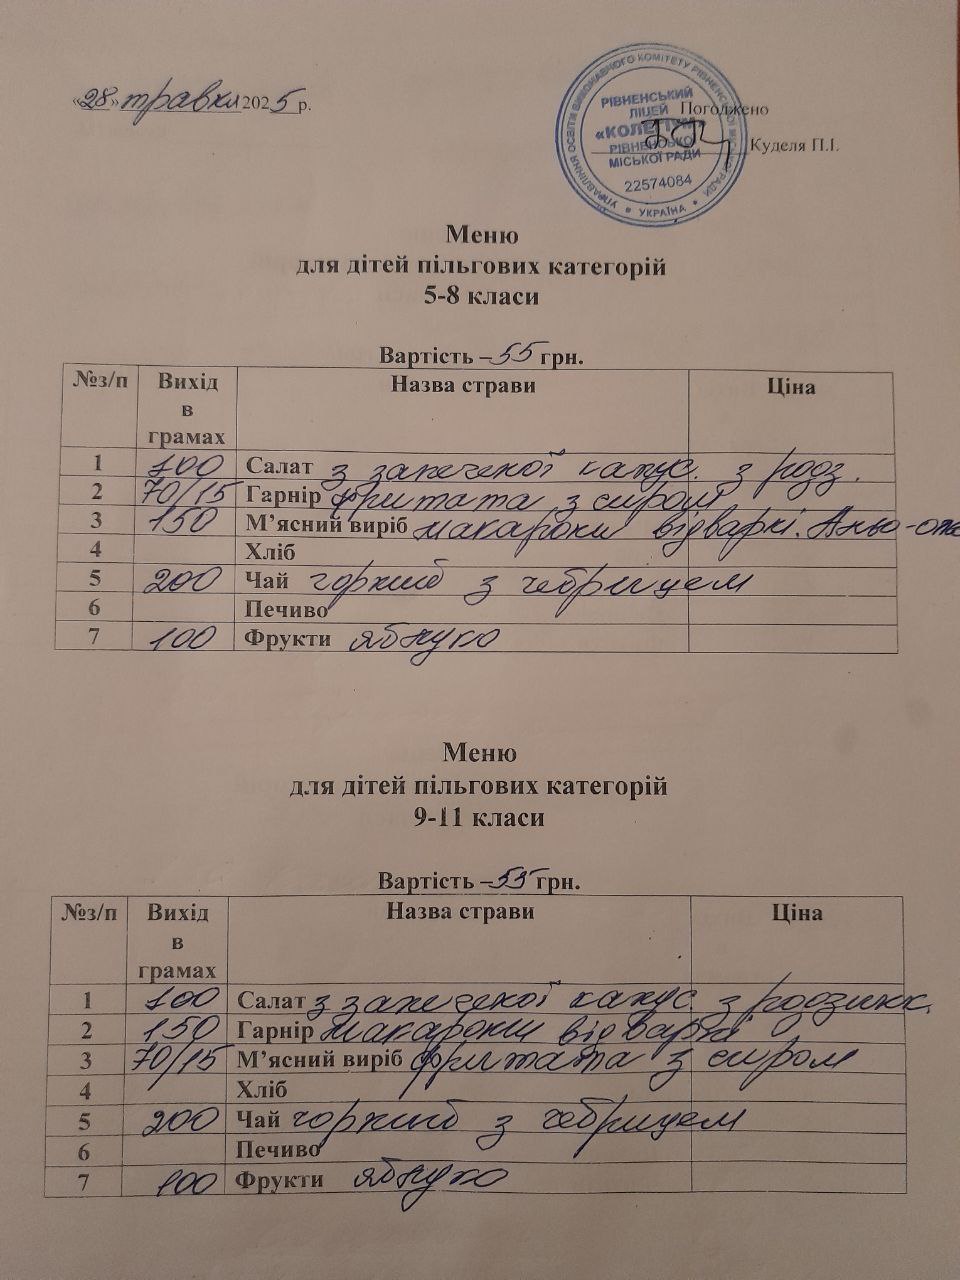 «28» травня 2025 р.
Погоджено
Куделя П.І.
УПРАВЛІННЯ ОСВІТИ ВИКОНАВЧОГО КОМІТЕТУ РІВНЕНСЬКОЇ МІСЬКОЇ РАДИ
РІВНЕНСЬКИЙ
ЛІЦЕЙ
«КОЛЕГІУМ»
РІВНЕНСЬКО
МІСЬКОЇ РАДИ
22574084
УКРАЇНА
Меню
для дітей пільгових категорій
5-8 класи
Вартість – 55 грн.
№з/п Вихід в грамах Назва страви Ціна
1 100 Салат з запеченої капус. з родз.
2 70/15 Гарнір фритата з сиром
3 150 М’ясний виріб макарони відварні.
4 Хліб
5 200 Чай чорний з чебрицем
6 Печиво
7 100 Фрукти яблуко
Меню
для дітей пільгових категорій
9-11 класи
Вартість – 55 грн.
№з/п Вихід в грамах Назва страви Ціна
1 100 Салат з запеченої капус. з родзинк.
2 150 Гарнір макарони відварні
3 70/15 М’ясний виріб фритата з сиром
4 Хліб
5 200 Чай чорний з чебрицем
6 Печиво
7 100 Фрукти яблуко